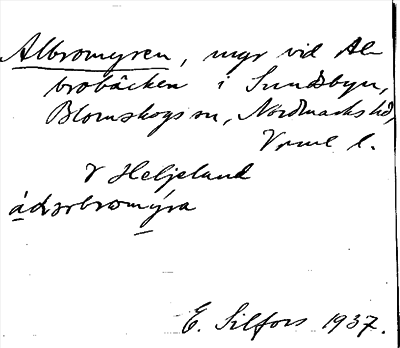 Albromyren, myr vid Al-
brobäcken i Sundsbyn,
Blomskogs sn, Nordmarks hd,
Vrml l.
V Heljeland
ádərbromýra
E. Silfors 1937.